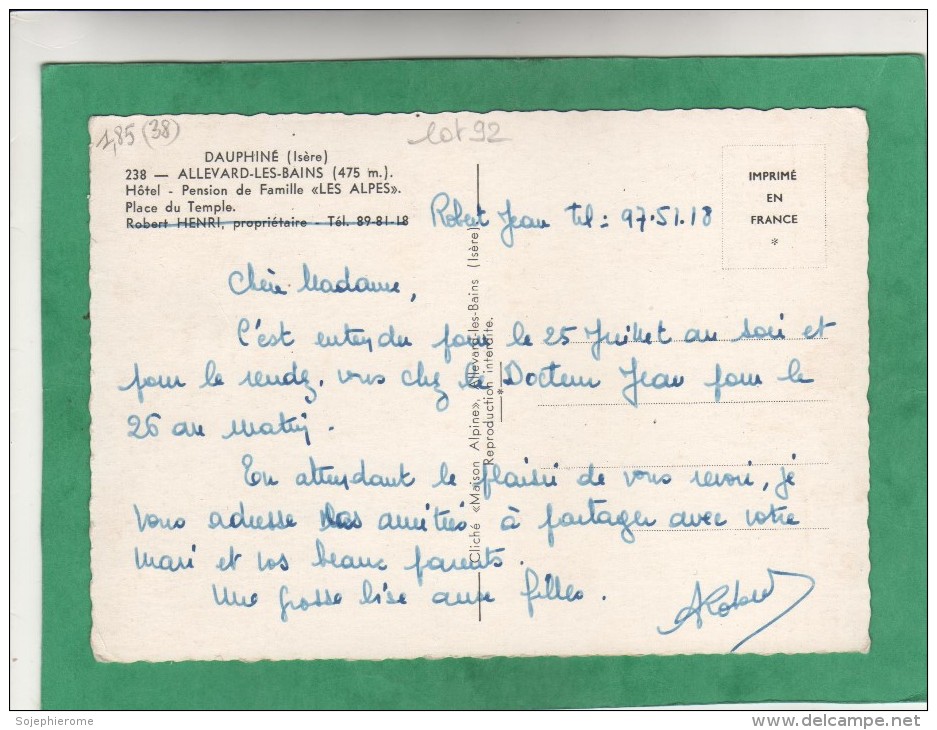 1,85 (38)
lot 92
DAUPHINÉ (Isère)
238 — ALLEVARD-LES-BAINS (475 m.).
Hôtel - Pension de Famille «LES ALPES».
Place du Temple.
Robert HENRI, propriétaire - Tél. 89-81-18
Robert Jean tel : 97.51.18
IMPRIMÉ
EN
FRANCE
*
Cliché «Maison Alpine», Allevard-les-Bains (Isère)
Reproduction interdite.
*
Chère Madame,
C'est entendu pour le 25 Juillet au soir et
pour le rendez-vous chez le Docteur Jean pour le
26 au matin.
En attendant le plaisir de vous revoir, je
vous adresse amitiés à partager avec votre
mari et vos beaux parents.
Une grosse bise aux filles.
ARobert
Sojephierome
www.delcampe.net